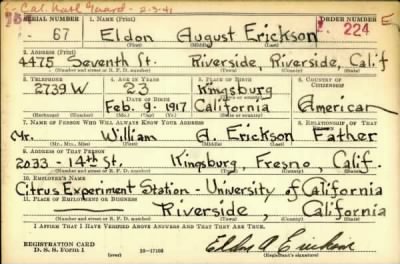 Cal. Natl Guard - 2-3-41
SERIAL NUMBER 1. NAME (Print) ORDER NUMBER
67 Eldon August Erickson 224 E
(First) (Middle) (Last)
2. ADDRESS (Print)
4475 Seventh St. Riverside, Riverside, Calif
(Number and street or R. F. D. number) (Town) (County) (State)
3. TELEPHONE 4. AGE IN YEARS 5. PLACE OF BIRTH 6. COUNTRY OF CITIZENSHIP
2739 W 23 Kingsburg
DATE OF BIRTH
Feb. 9. 1917 California American
7. NAME OF PERSON WHO WILL ALWAYS KNOW YOUR ADDRESS 8. RELATIONSHIP OF THAT PERSON
Mr. William A. Erickson Father
(Mr., Mrs., Miss) (First) (Middle) (Last)
9. ADDRESS OF THAT PERSON
2033 - 14th St. Kingsburg, Fresno, Calif.
(Number and street or R. F. D. number) (Town) (County) (State)
10. EMPLOYER'S NAME
Citrus Experiment Station - University of California
11. PLACE OF EMPLOYMENT OR BUSINESS
Riverside, California
(Number and street or R. F. D. number) (Town) (County) (State)
I AFFIRM THAT I HAVE VERIFIED ABOVE ANSWERS AND THAT THEY ARE TRUE.
REGISTRATION CARD
D. S. S. Form 1
16-17105
Eldon A Erickson
(Registrant's signature)